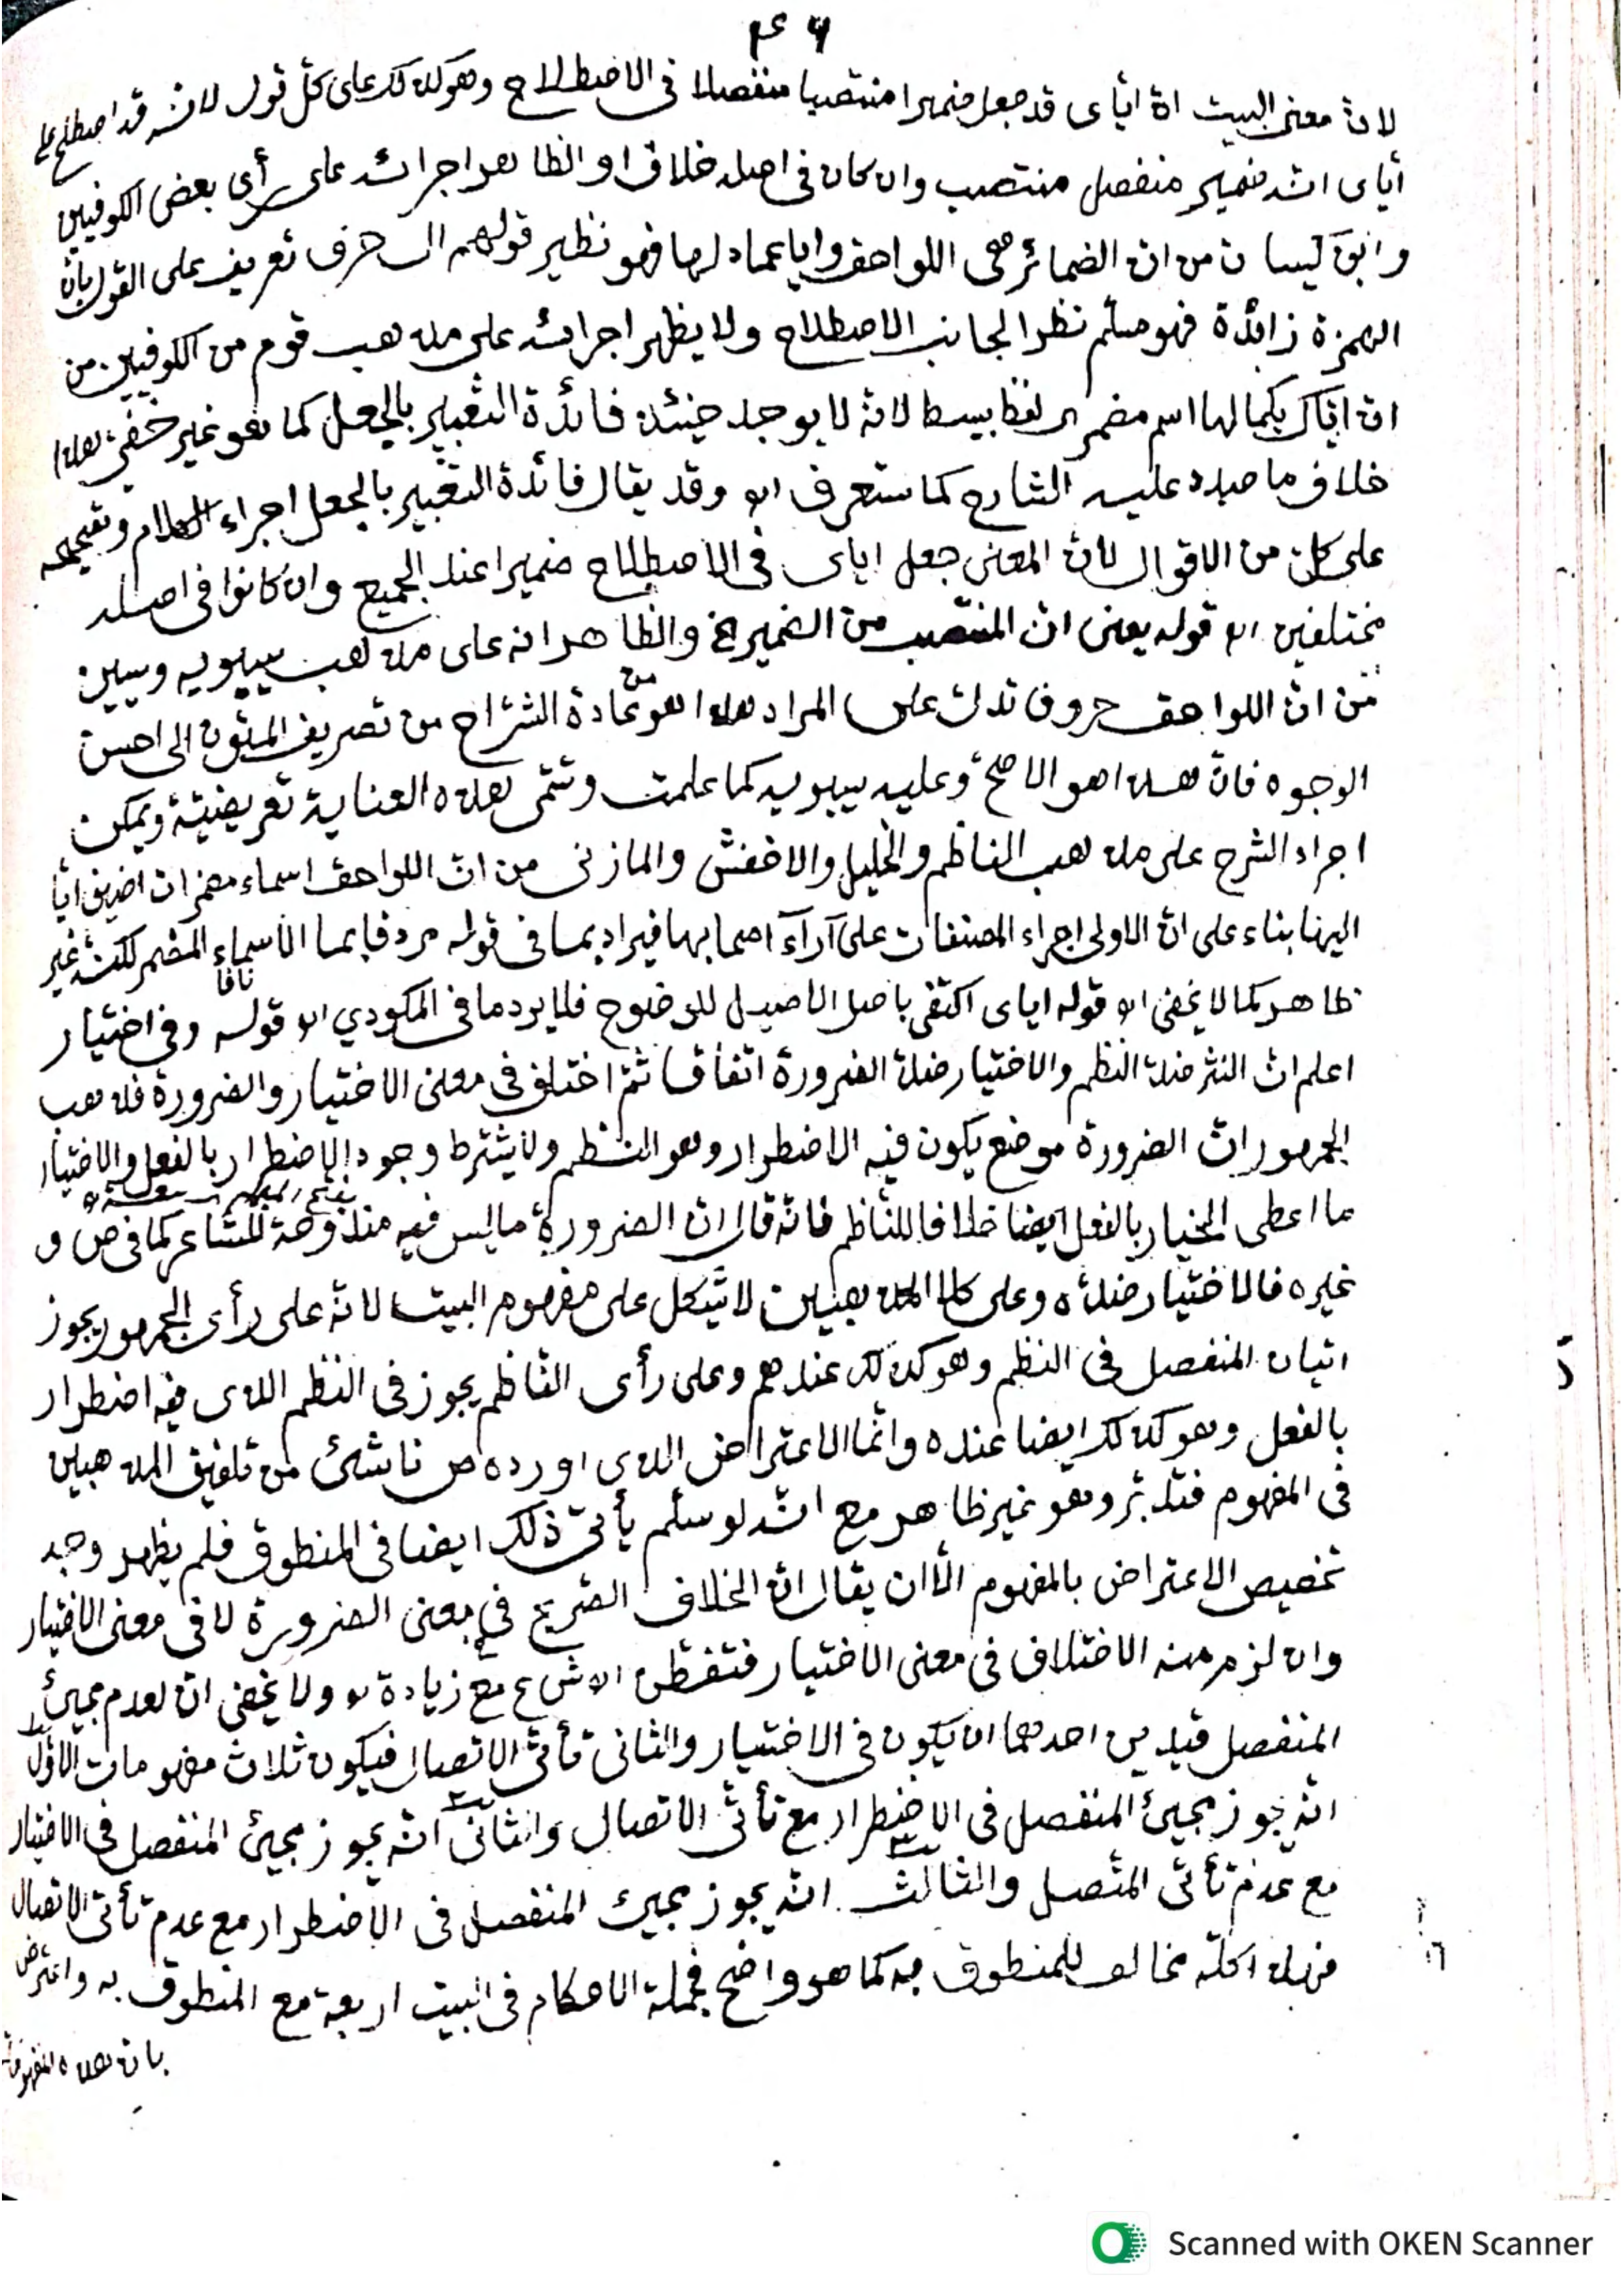 ٤٦
لان معنى البيت ان اياى قد جعل ضميرا منتصبا منفصلا فى الاصطلاح وهو كذلك على كل قول لانه قد اصطلح على
اياى انه ضمير منفصل منتصب وان كان فى اصله خلاف او الظاهر اجرائه على رأى بعض الكوفيين
وابن كيسان من ان الضمائر هى اللواحق وايا عماد لها فهو نظير قولهم ال حرف تعريف على القول بان
الهمزة زائدة فهو مسلم نظرا لجانب الاصطلاح ولا يظهر اجرائه على مذهب قوم من الكوفيين من
ان اياك بكمالها اسم مضمر لفظا بسيطا لانه لا يوجد حينئذ فائدة التعبير بالجعل كما هو غير خفى هذا
خلاف ما عليه الشارح كما ستعرف اه وقد يقال فائدة التعبير بالجعل اجراء الكلام وتعميمه
على كل من الاقوال لان المعنى جعل اياى فى الاصطلاح ضميرا عند الجميع وان كانوا فى اصله
مختلفين اه قوله يعنى ان المنتصب من الضمير الخ والظاهر انه على مذهب سيبويه وسيبين
من ان اللواحق حروف تدل على المراد هذا هو من عادة الشراح من تصريف المتون الى احسن
الوجوه فان هذا هو الاصح وعليه سيبويه كما علمت وتسمى هذه العناية تعريضية ويمكن
اجراء الشرح على مذهب الناظم والخليل والاخفش والمازنى من ان اللواحق اسماء مضمرات اضيف ايا
اليها بناء على ان الاولى اجراء المصنفات على آراء اصحابها فيراد بما فى قوله مردفا بما الاسماء المضمر لكنه غير
ظاهر كما لا يخفى اه قوله اياى اكتفى باصل الاصيل للوضوح فلا يرد ما فى المكودي اه قوله وفى اختيار
اعلم ان النثر ضد النظم والاختيار ضد الضرورة اتفاقا ثم اختلف فى معنى الاختيار والضرورة فذهب
الجمهور ان الضرورة موضع يكون فيه الاضطرار وهو النظم ولا يشترط وجود الاضطرار بالفعل والاختيار
ما اعطى الخيار بالفعل ايضا خلافا للناظم فانه قال ان الضرورة ما ليس فيه مندوحة للشاعر كما فى ص و
غيره فالاختيار ضده وعلى كلا المذهبين لا شكل على مفهوم البيت لانه على رأى الجمهور يجوز
اتيان المنفصل فى النظم وهو كذلك عندهم وعلى رأى الناظم يجوز فى النظم الذى فيه اضطرار
بالفعل وهو كذلك ايضا عنده وانما الاعتراض الذى اورده ص ناشئ من تلفيق المذهبين
فى المفهوم فتدبر وهو غير ظاهر مع انه لو سلم يأتى ذلك ايضا فى المنطوق فلم يظهر وجه
تخصيص الاعتراض بالمفهوم الا ان يقال ان الخلاف الصريح فى معنى الضرورة لا فى معنى الاختيار
وان لزم منه الاختلاف فى معنى الاختيار فتفطن اه ش ع مع زيادة اه ولا يخفى ان لعدم مجيئ
المنفصل قيدين احدهما ان يكون فى الاختيار والثانى تأتى الاتصال فيكون ثلاث مفهومات الاول
انه يجوز مجيئ المنفصل فى الاضطرار مع تأتى الاتصال والثانى انه يجوز مجيئ المنفصل فى الاختيار
مع عدم تأتى المتصل والثالث انه يجوز مجيئ المنفصل فى الاضطرار مع عدم تأتى الاتصال
فهذا كله مخالف للمنطوق به كما هو واضح فجملة الاحكام فى البيت اربعة مع المنطوق به واعترض
بان هذه المفهومات
Scanned with OKEN Scanner